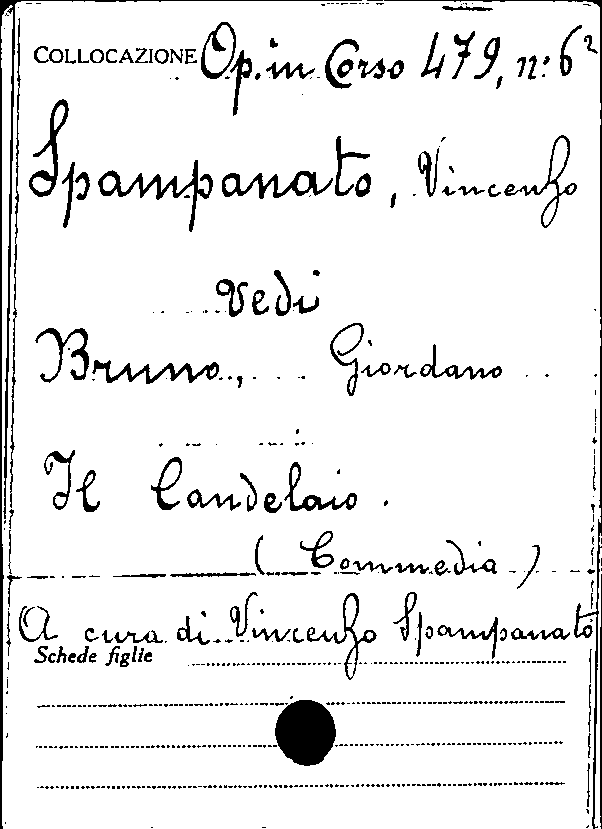 COLLOCAZIONE Op. in Corso 479, n: 6²
Spampanato, Vincenzo
Vedi
Bruno, Giordano
Il Candelaio.
(Commedia)
A cura di Vincenzo Spampanato
Schede figlie